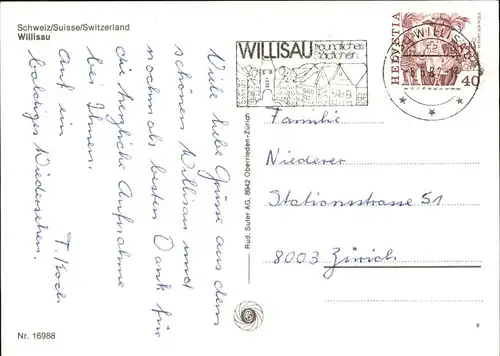 Schweiz/Suisse/Switzerland
Willisau
Viele liebe Grüsse aus dem
schönen Willisau und
nochmals besten Dank für
die herzliche Aufnahme
bei Ihnen.
Auf ein
baldiges Wiedersehen.
T. Koch
Nr. 16988
Rud. Suter AG, 8942 Oberrieden-Zürich
WILLISAU
freundliches
Städtchen
WILLISAU
HELVETIA
40
Familie
Niederer
Stationsstrasse 51
8003 Zürich